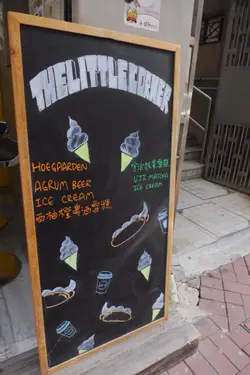 THE LITTLE CORNER
HOEGAARDEN
AGRUM BEER
ICE CREAM
西柚橙啤酒雪糕
宇治抹茶雪糕
UJI MATCHA
ICE CREAM